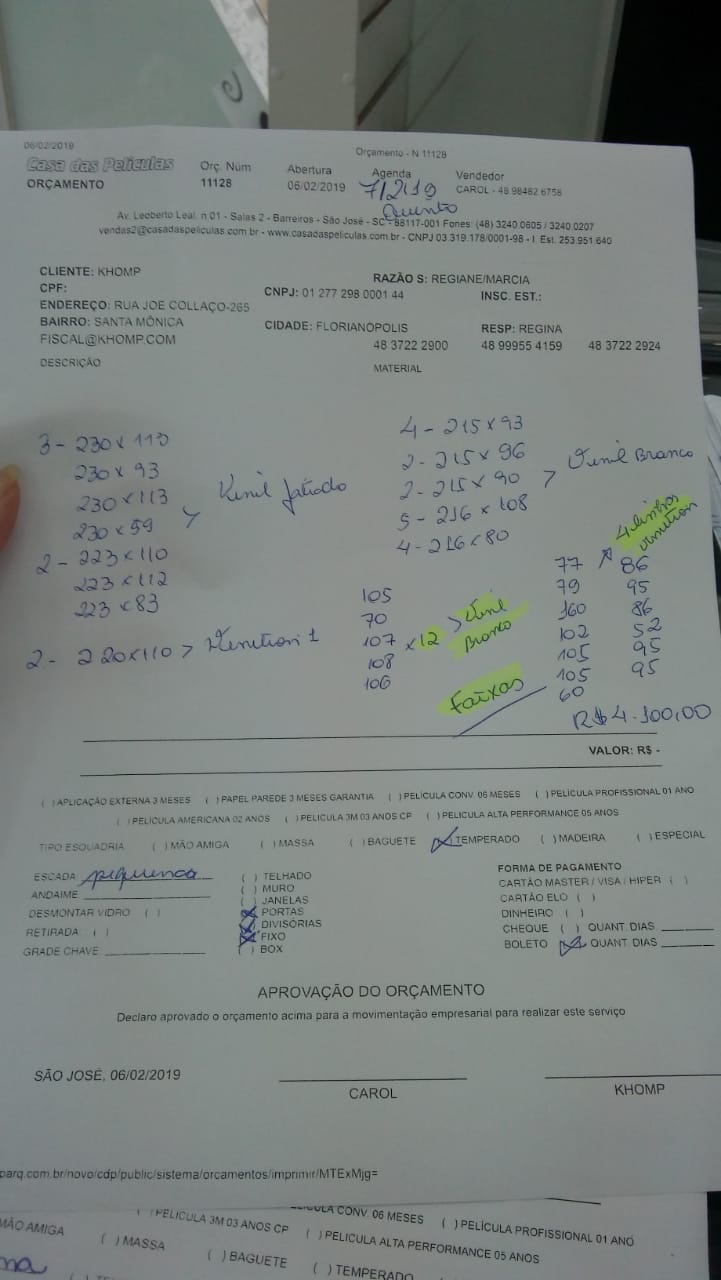 06/02/2019
Orçamento - N 11128
Casa das Películas
ORÇAMENTO
Orç. Núm
11128
Abertura
06/02/2019
Agenda
7/2/19
Quinta
Vendedor
CAROL - 48 98482 6758
Av. Leoberto Leal, n 01 - Salas 2 - Barreiros - São José - SC - 88117-001 Fones: (48) 3240.0605 / 3240.0207
vendas2@casadaspeliculas.com.br - www.casadaspeliculas.com.br - CNPJ 03.319.178/0001-98 - I. Est. 253.951.640
CLIENTE: KHOMP
RAZÃO S: REGIANE/MARCIA
CPF:
CNPJ: 01 277 298 0001 44
INSC. EST.:
ENDEREÇO: RUA JOE COLLAÇO-265
BAIRRO: SANTA MÔNICA
CIDADE: FLORIANÓPOLIS
RESP: REGINA
FISCAL@KHOMP.COM
48 3722 2900
48 99955 4159
48 3722 2924
DESCRIÇÃO
MATERIAL
3 - 230 x 110
230 x 93
230 x 113
230 x 59 > Vinil Jatiado
2 - 223 x 110
223 x 112
223 x 83
2 - 220x110 >
4 - 215 x 93
2 - 215 x 96
2 - 215 x 90 > Vinil Branco
5 - 216 x 108
4 - 216 x 80
105
70
107 x 12 > Vinil Branco
108
106
Faixas
4 linhas
77
79
160
102
105
105
60
86
95
86
52
95
95
R$ 4.100,00
VALOR: R$ -
( ) APLICAÇÃO EXTERNA 3 MESES ( ) PAPEL PAREDE 3 MESES GARANTIA ( ) PELÍCULA CONV. 06 MESES ( ) PELÍCULA PROFISSIONAL 01 ANO
( ) PELÍCULA AMERICANA 02 ANOS ( ) PELÍCULA 3M 03 ANOS CP ( ) PELICULA ALTA PERFORMANCE 05 ANOS
TIPO ESQUADRIA ( ) MÃO AMIGA ( ) MASSA ( ) BAGUETE (x) TEMPERADO ( ) MADEIRA ( ) ESPECIAL
ESCADA pequena
ANDAIME
DESMONTAR VIDRO ( )
RETIRADA: ( )
GRADE CHAVE
( ) TELHADO
( ) MURO
( ) JANELAS
(x) PORTAS
(x) DIVISÓRIAS
(x) FIXO
( ) BOX
FORMA DE PAGAMENTO
CARTÃO MASTER / VISA / HIPER ( )
CARTÃO ELO ( )
DINHEIRO ( )
CHEQUE ( ) QUANT. DIAS
BOLETO (x) QUANT. DIAS
APROVAÇÃO DO ORÇAMENTO
Declaro aprovado o orçamento acima para a movimentação empresarial para realizar este serviço
SÃO JOSÉ, 06/02/2019
CAROL
KHOMP
parq.com.br/novo/cdp/public/sistema/orcamentos/imprimir/MTExMjg=
CONV. 06 MESES ( ) PELÍCULA PROFISSIONAL 01 ANO
( ) PELICULA 3M 03 ANOS CP ( ) PELICULA ALTA PERFORMANCE 05 ANOS
MÃO AMIGA ( ) MASSA ( ) BAGUETE ( ) TEMPERADO